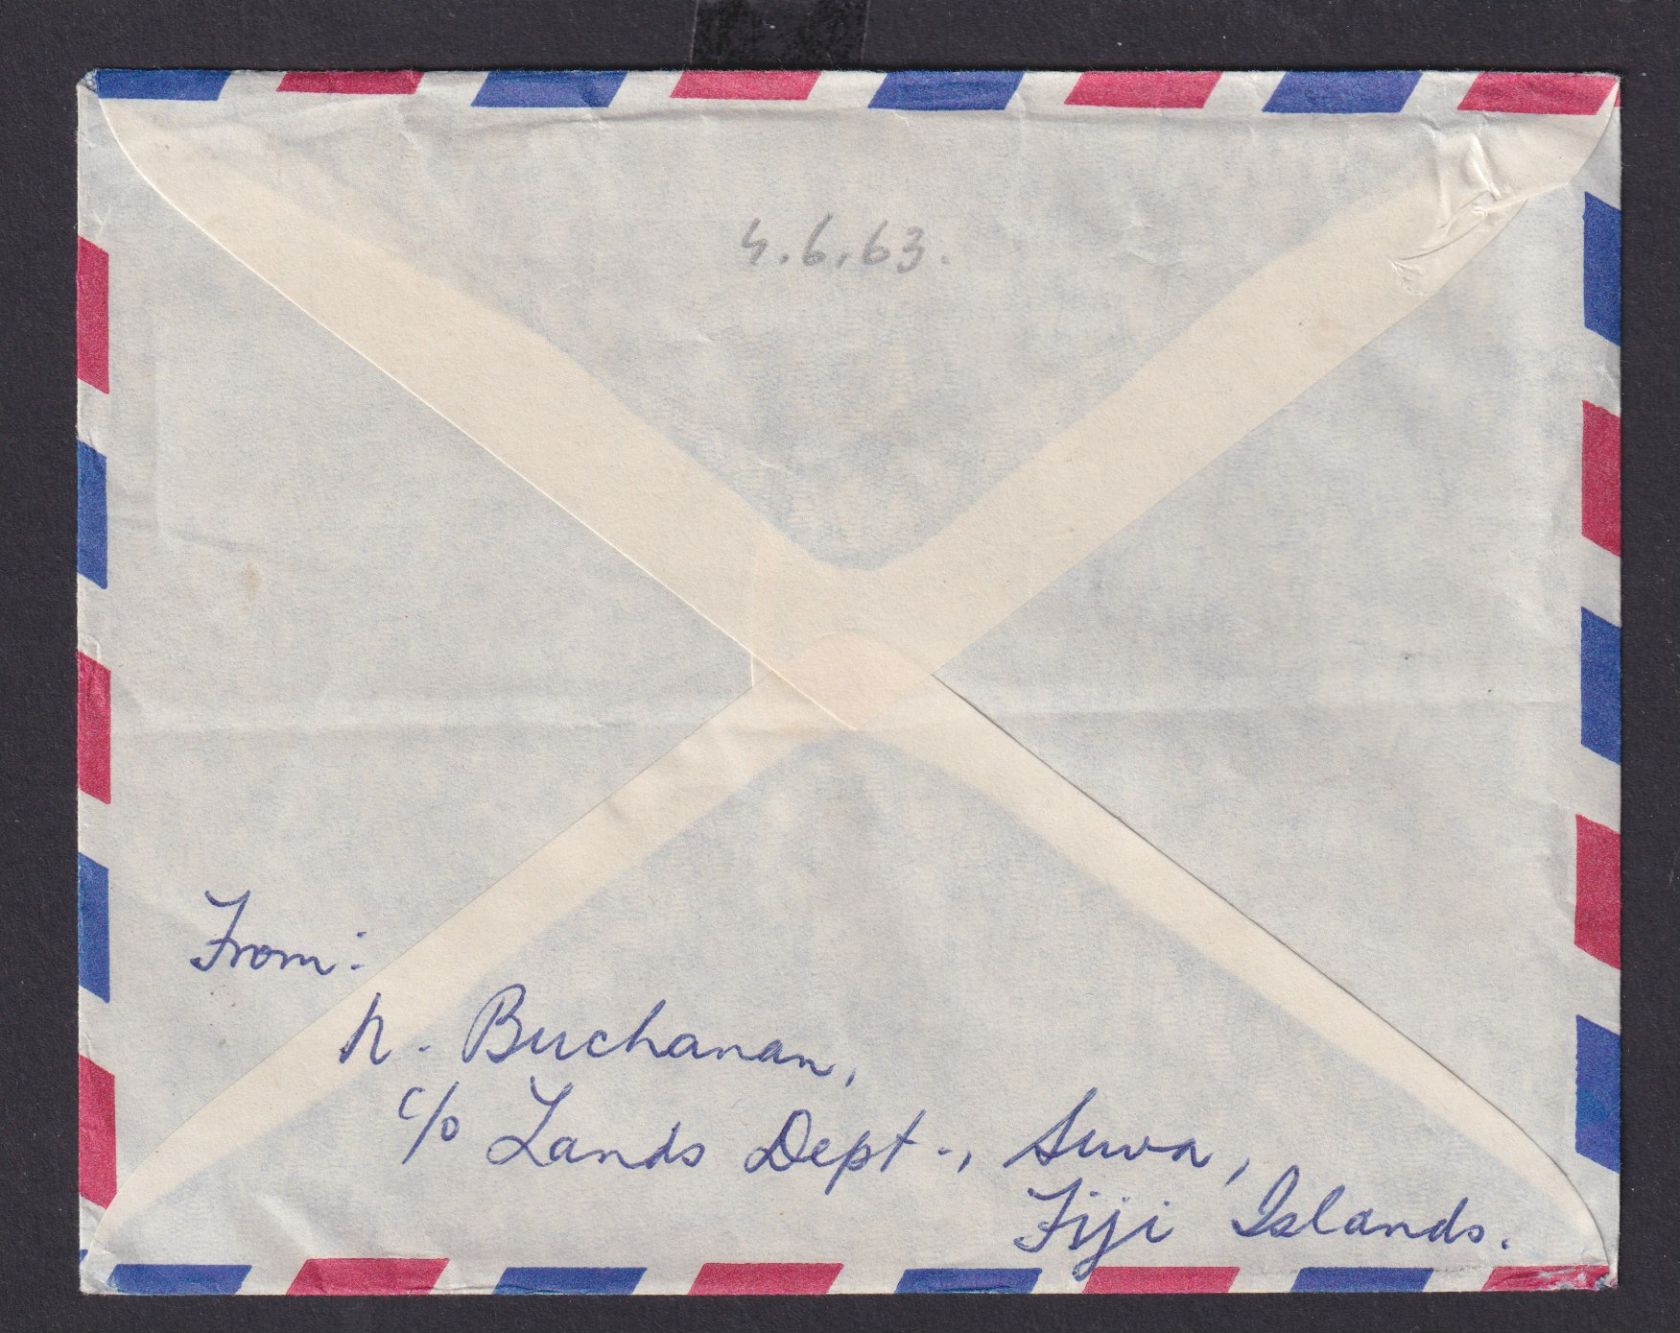 4.6.63.
From:
N. Buchanan,
c/o Lands Dept., Suva,
Fiji Islands.